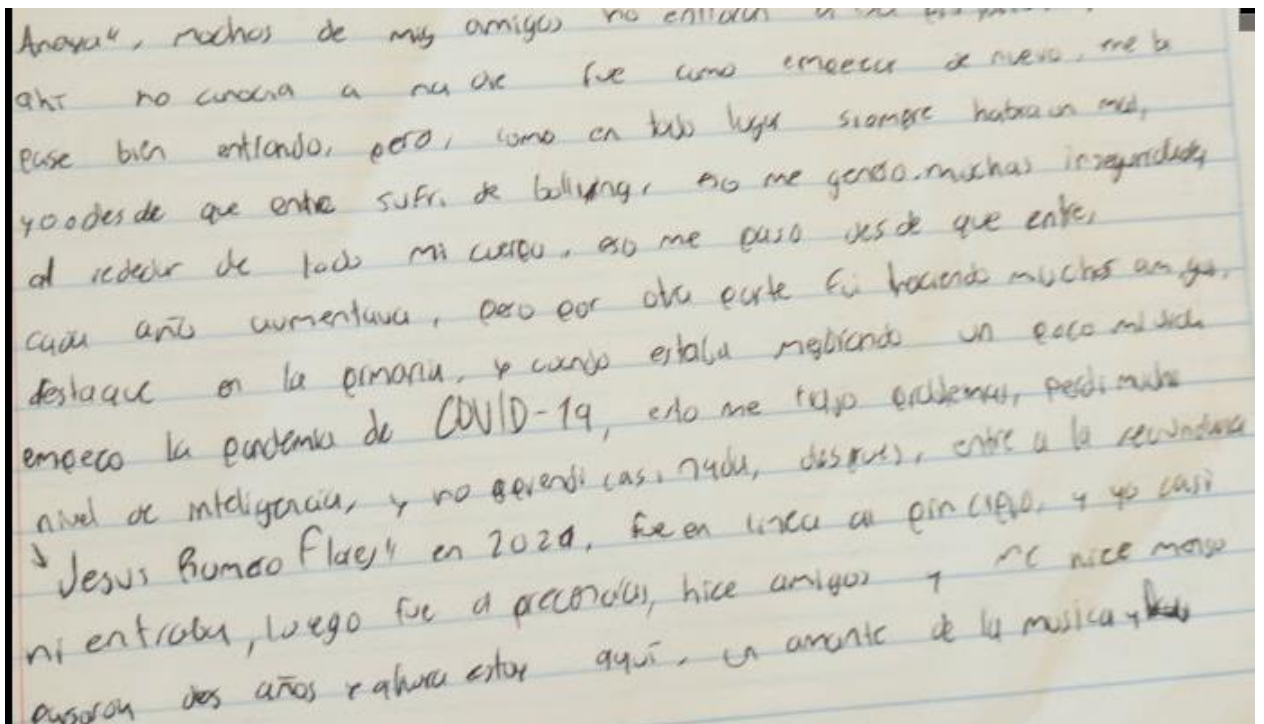 Anaya", mochos de mis amigos no entraron a
ahi no conocia a na die fue como empezar de nuevo, me la
pase bien entrando, pero, como en todo lugar siempre habra un mal,
yo o desde que entre sufri de bollying, eso me genero muchas inseguridades
al rededor de todo mi cuerpo, eso me paso desde que entre,
cada año aumentava, pero por otra parte fui haciendo muchos amigos,
destaque en la primaria, y cuando estaba mejorando un poco mi vida
empeco la pandemia de COVID-19, esto me trajo problemas, perdi mucho
nivel de inteligencia, y no aprendi casi nada, despues, entre a la secundaria
"Jesus Romeo Flores" en 2021, fue en linea al principio, y yo casi
ni entraba, luego fue a precencial, hice amigos y me hice
pasaron dos años y ahora estoy aquí, un amante de la musica y